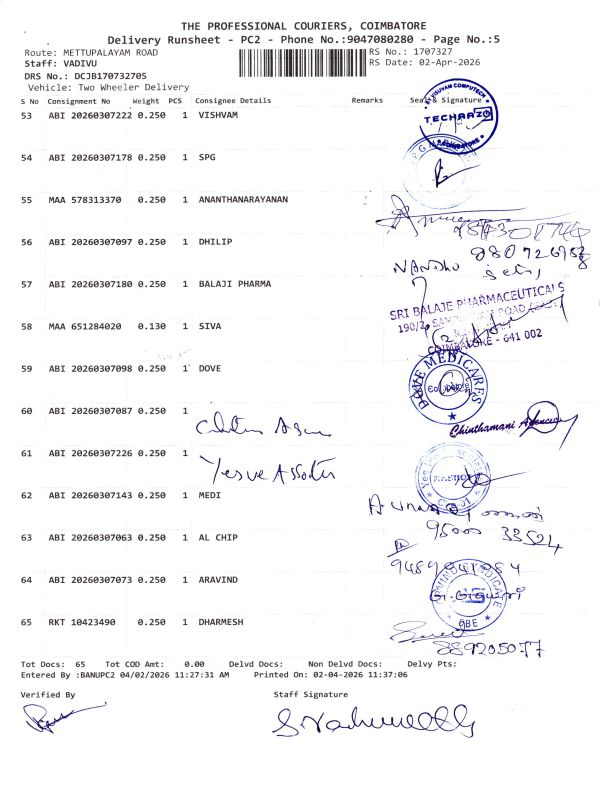 THE PROFESSIONAL COURIERS, COIMBATORE
Delivery Runsheet - PC2 - Phone No.:9047080280 - Page No.:5
Route: METTUPALAYAM ROAD RS No.: 1707327
Staff: VADIVU RS Date: 02-Apr-2026
DRS No.: DCJB170732705
Vehicle: Two Wheeler Delivery
S No Consignment No Weight PCS Consignee Details Remarks Seal & Signature
53 ABI 20260307222 0.250 1 VISHVAM
TECHARZO
54 ABI 20260307178 0.250 1 SPG
55 MAA 578313370 0.250 1 ANANTHANARAYANAN
56 ABI 20260307097 0.250 1 DHILIP
NANDHU
57 ABI 20260307180 0.250 1 BALAJI PHARMA
SRI BALAJE PHARMACEUTICALS
58 MAA 651284020 0.130 1 SIVA
COIMBATORE - 641 002
59 ABI 20260307098 0.250 1 DOVE
DOVE MEDICARES
60 ABI 20260307087 0.250 1
Chinthamani Agencies
61 ABI 20260307226 0.250 1
62 ABI 20260307143 0.250 1 MEDI
95000 33524
63 ABI 20260307063 0.250 1 AL CHIP
64 ABI 20260307073 0.250 1 ARAVIND
65 RKT 10423490 0.250 1 DHARMESH
889205077
Tot Docs: 65 Tot COD Amt: 0.00 Delvd Docs: Non Delvd Docs: Delvy Pts:
Entered By :BANUPC2 04/02/2026 11:27:31 AM Printed On: 02-04-2026 11:37:06
Verified By Staff Signature